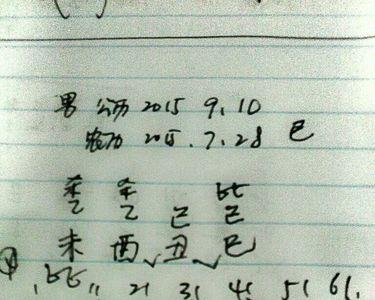 男 公历 2015 9.10
农历 2015.7.28 巳
杀 杀 比
乙 乙 己 己
未 酉 丑 巳
11 21 31 41 51 61